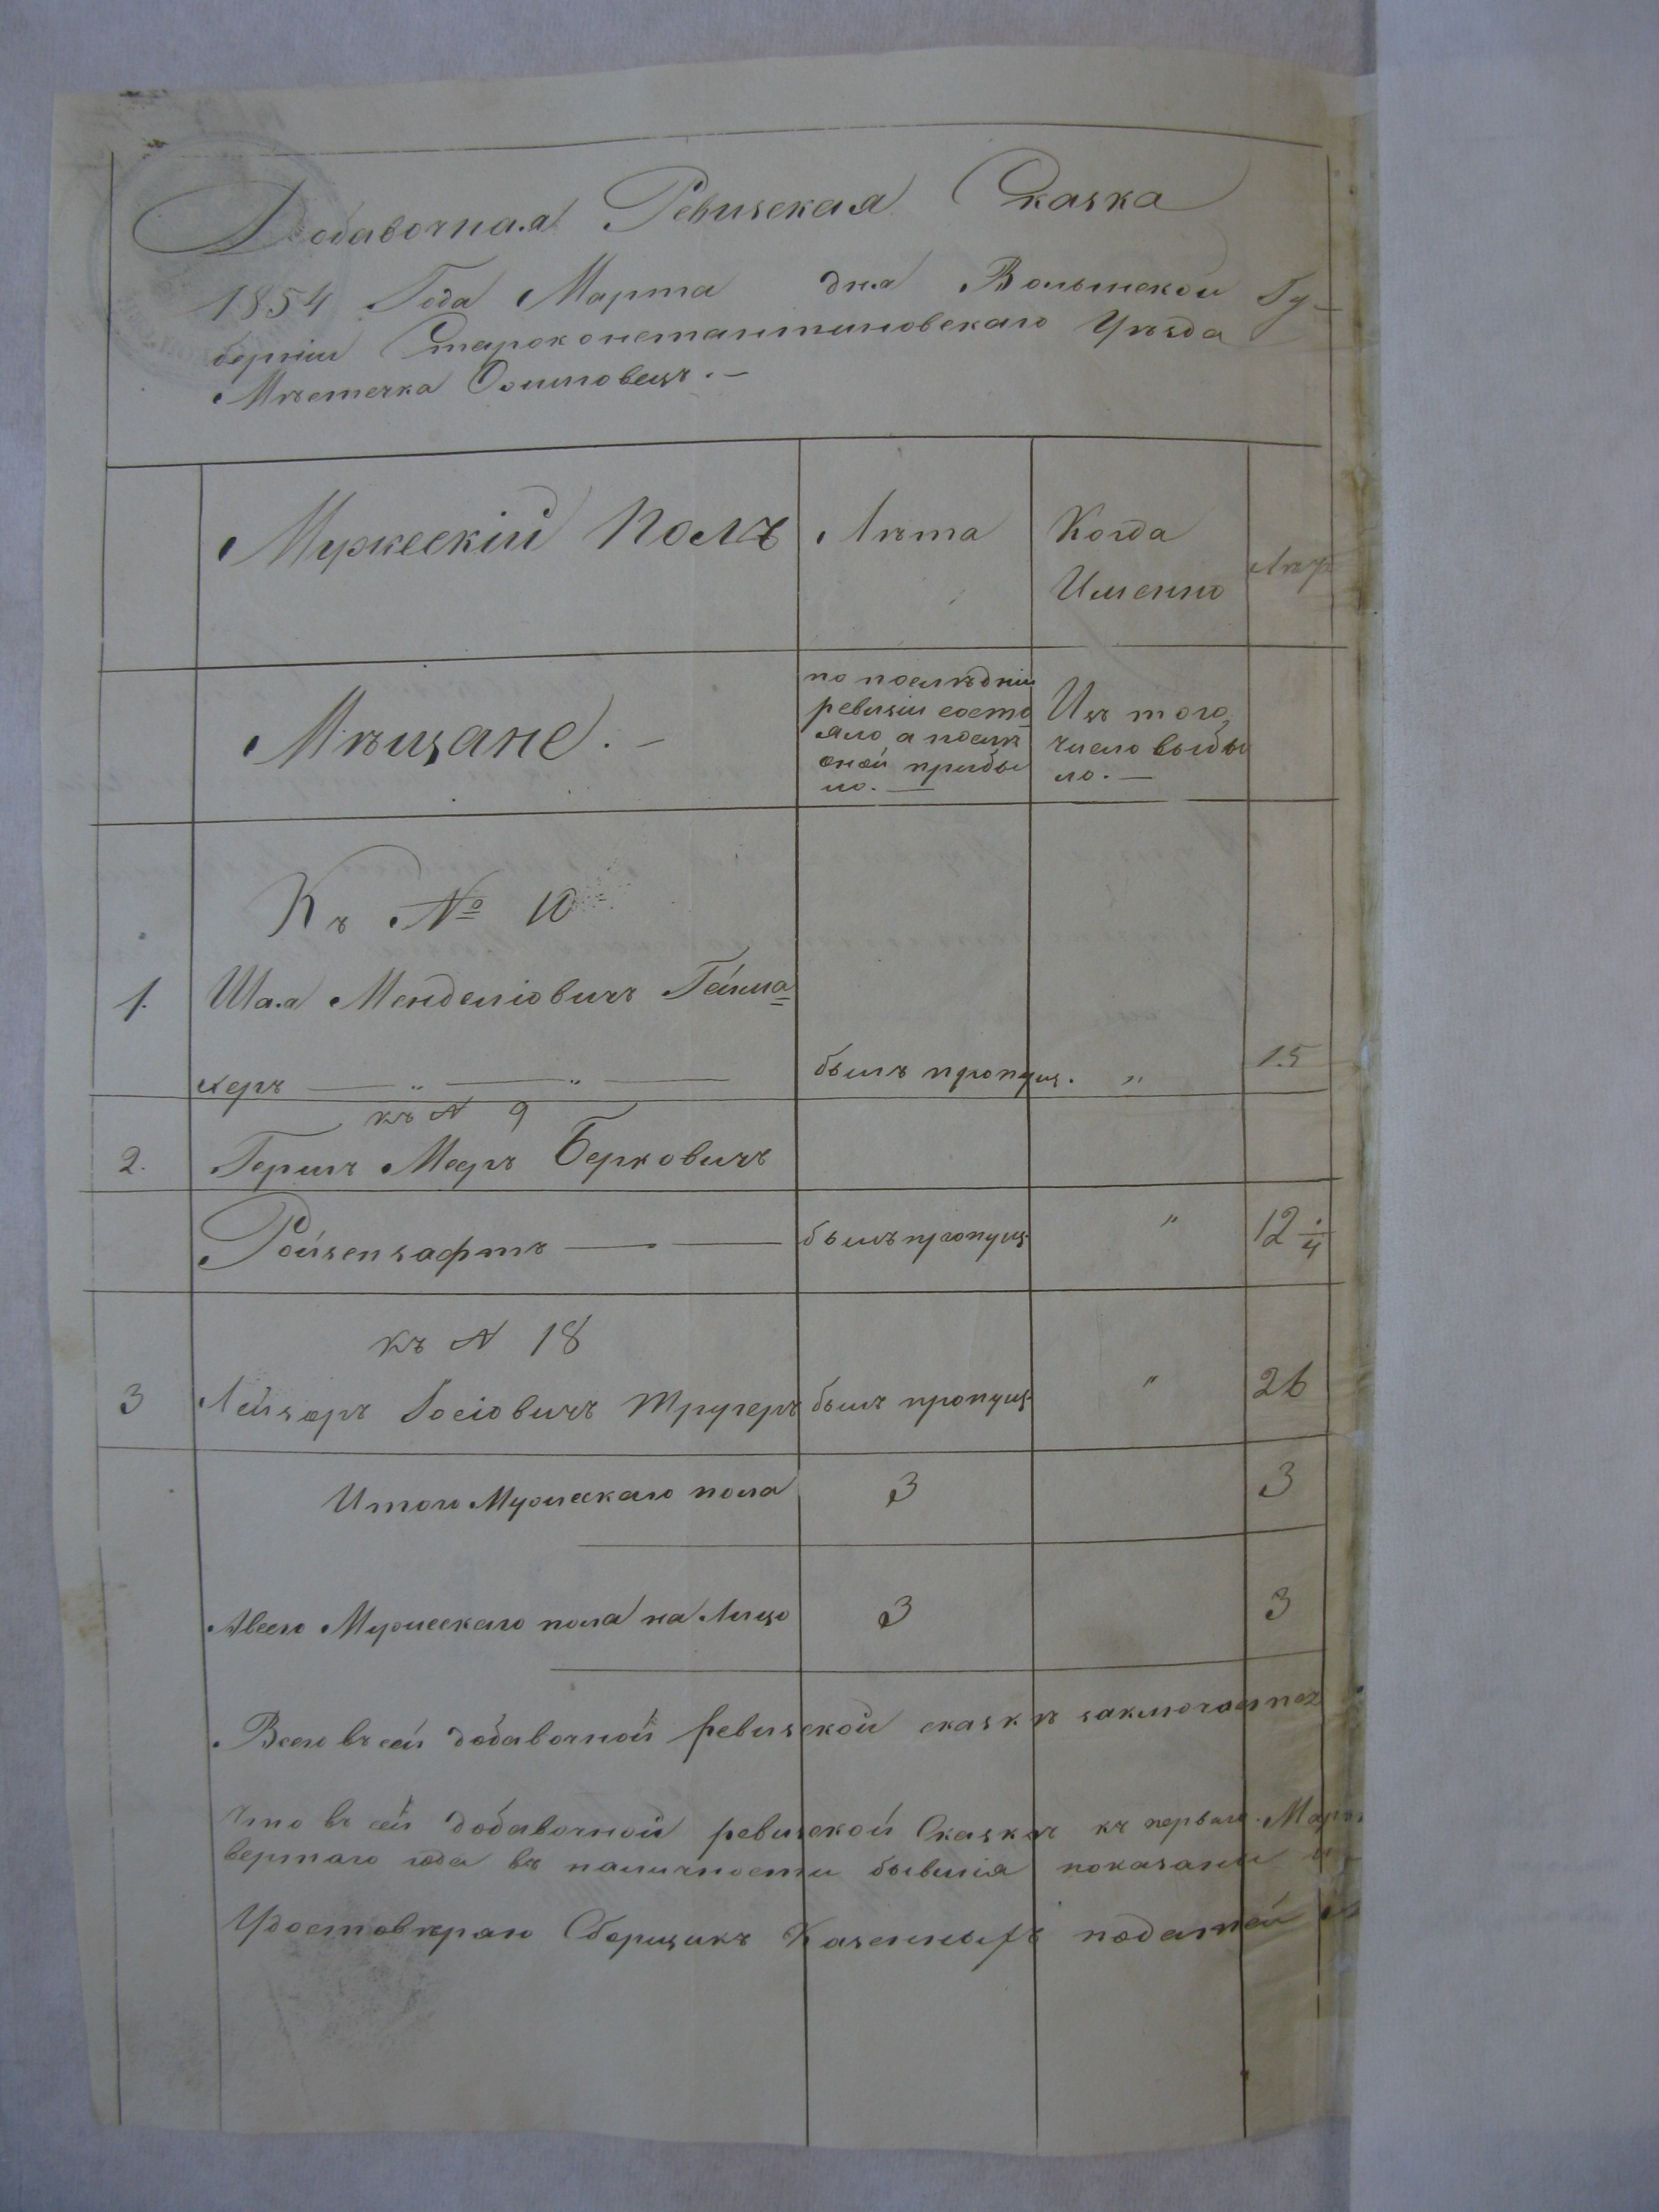 Добавочная Ревизская Сказка
1854 Года Марта дня Волынской Гу-
берніи Староконстантиновскаго Уѣзда
Мѣстечка
Мужескій Полъ
Лѣта
Когда
Именно
Лѣт
Мѣщане. —
по послѣдніи
ревизіи состо
яло а послѣ
оной прибы
ло. —
Изъ того
число выбы
ло. —
Къ № 10
1. Шая Менделіовичъ
керъ — „ — „ — былъ пропущ. „ 15
къ № 9
2. Гершъ Мееръ Берковичъ
Ройзензафтъ — — былъ пропущ. „ 12
къ № 18
3 Лейзоръ Іосіовичъ былъ пропущ. „ 26
Итого Мужескаго пола 3 3
Всего Мужескаго пола на Лицо 3 3
Всего въ сей добавочной ревизской сказкѣ заключается
Что въ сей добавочной ревизской Сказкѣ къ первому
вертаго года въ наличности бывшія показаны
Удостовѣраю Сборщикъ Казенныхъ податей